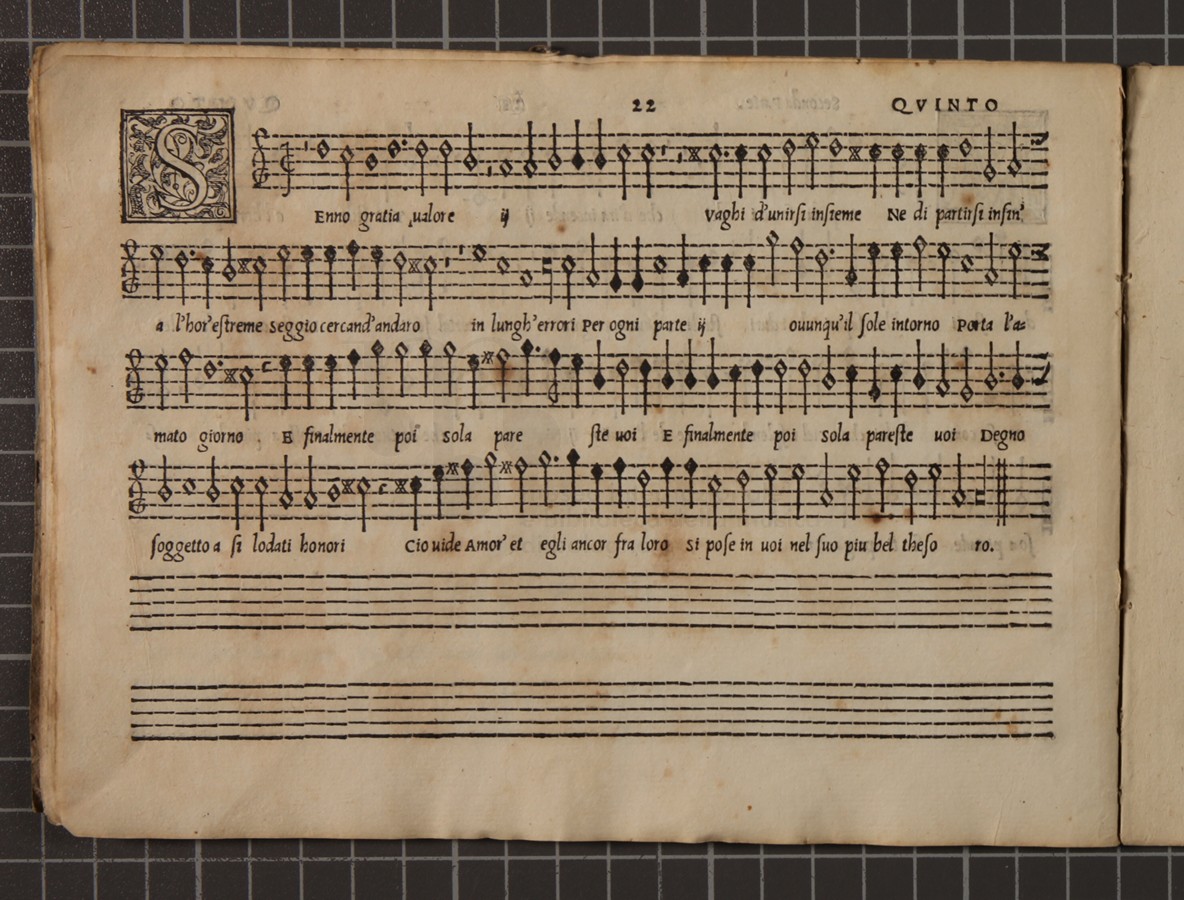 22 QVINTO
SEnno gratia ualore ij Vaghi d'unirsi insieme Ne di partirsi insin'
a l'hor'estreme Seggio cercand'andaro in lungh'errori Per ogni parte ij ouunqu'il sole intorno Porta l'a=
mato giorno E finalmente poi sola pare ste uoi E finalmente poi sola pareste uoi Degno
soggetto a si lodati honori Cio uide Amor' et egli ancor fra loro Si pose in uoi nel suo piu bel theso ro.